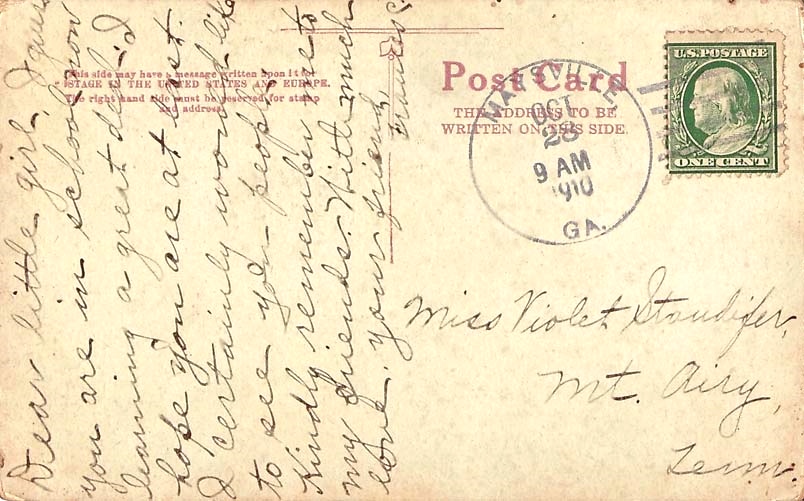 This side may have a message written upon it for
POSTAGE IN THE UNITED STATES AND EUROPE.
The right hand side must be reserved for stamp
and address.
Post Card
THE ADDRESS TO BE
WRITTEN ON THIS SIDE.
MAYSVILLE
OCT
28
9 AM
1910
GA.
U.S. POSTAGE
ONE CENT
Dear little girl, I guess
you are in school now
learning a great deal. I
hope you are at last.
I certainly would like
to see you people.
Kindly remember me to
my friends. With much
love, your friend,
Frances.
Miss Violet Standifer,
Mt. Airy,
Tenn.